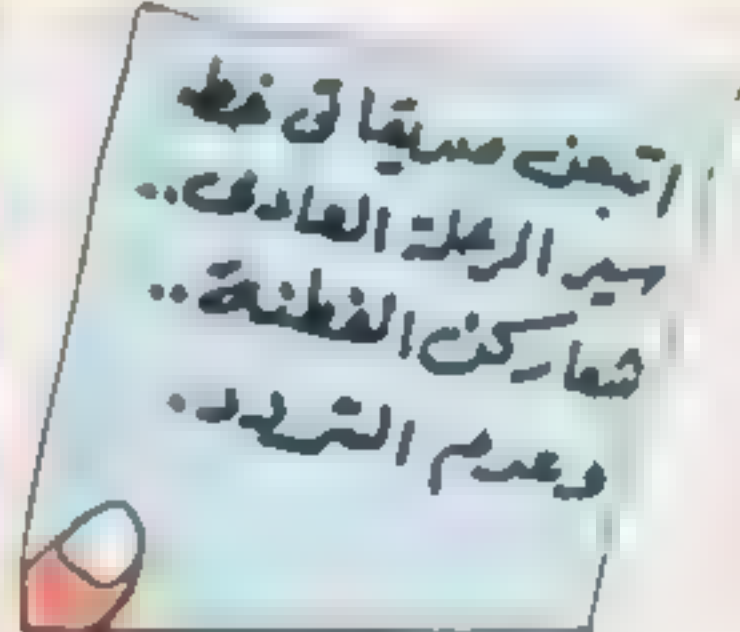 اتبعن مسيقا فى خط
سير الرحلة العادى..
شعاركن الفطنة..
وعدم التردد.